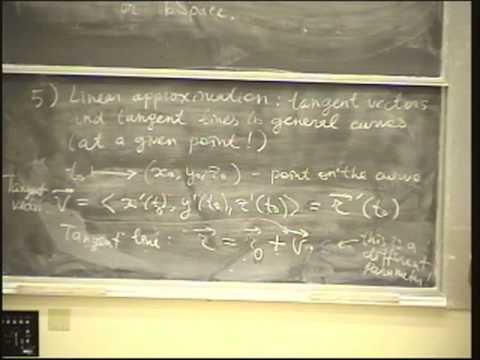 or Space.
5) Linear approximation: tangent vectors
and tangent lines to general curves
(at a given point!)
t₀ ⟼ (x₀, y₀, z₀) - point on the curve
Tangent vector v⃗ = ⟨x'(t₀), y'(t₀), z'(t₀)⟩ = r⃗'(t₀)
Tangent line: r⃗ = r⃗₀ + v⃗ ← this is a
different
parameter!